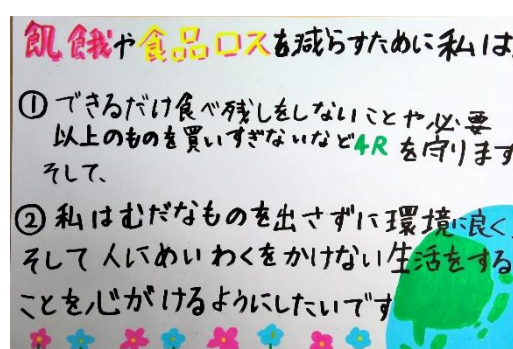 飢餓や食品ロスを減らすために私は
①できるだけ食べ残しをしないことや必要
以上のものを買いすぎないなど4Rを守ります
そして、
②私はむだなものを出さずに環境に良く
そして人にめいわくをかけない生活をする
ことを心がけるようにしたいです